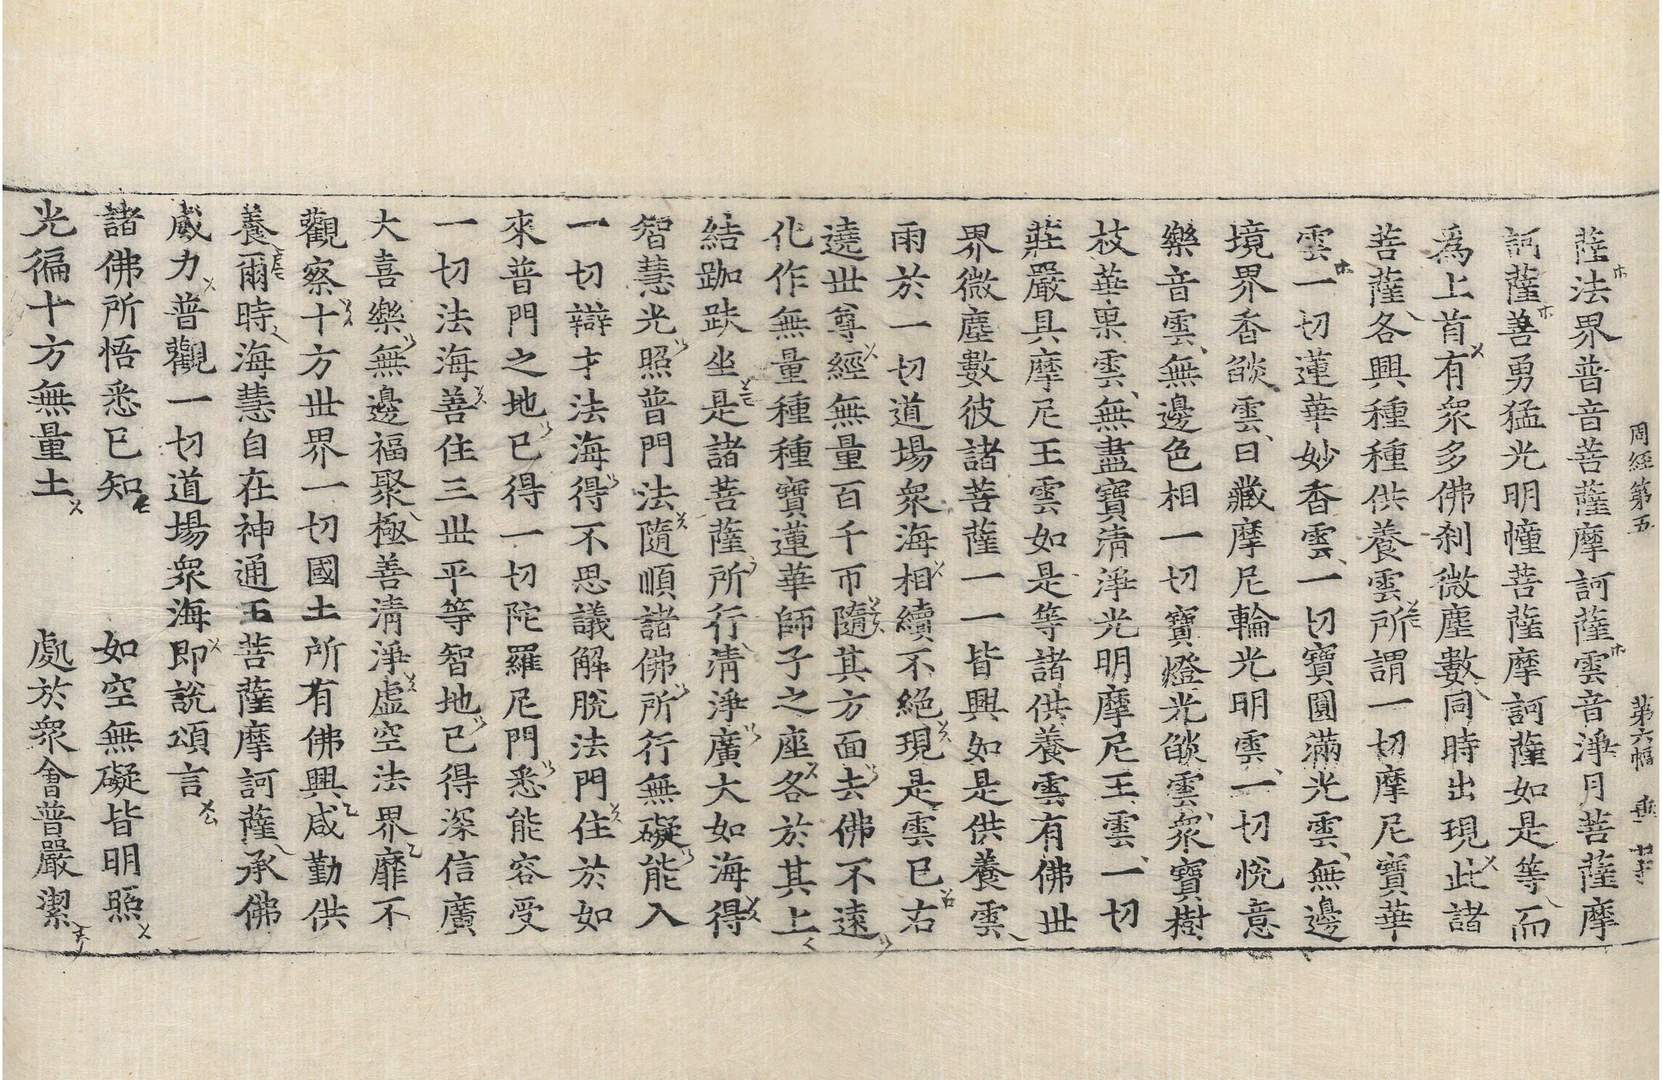 周經第五 第六幅
薩法界普音菩薩摩訶薩雲音淨月菩薩摩
訶薩善勇猛光明幢菩薩摩訶薩如是等而
爲上首有衆多佛刹微塵數同時出現此諸
菩薩各興種種供養雲所謂一切摩尼寶華
雲一切蓮華妙香雲一切寶圓滿光雲無邊
境界香燄雲日藏摩尼輪光明雲一切悅意
樂音雲無邊色相一切寶燈光燄雲衆寶樹
枝華果雲無盡寶清淨光明摩尼王雲一切
莊嚴具摩尼王雲如是等諸供養雲有佛世
界微塵數彼諸菩薩一一皆興如是供養雲
雨於一切道場衆海相續不絕現是雲已右
遶世尊經無量百千帀隨其方面去佛不遠
化作無量種種寶蓮華師子之座各於其上
結跏趺坐是諸菩薩所行清淨廣大如海得
智慧光照普門法隨順諸佛所行無礙能入
一切辯才法海得不思議解脫法門住於如
來普門之地已得一切陀羅尼門悉能容受
一切法海善住三世平等智地已得深信廣
大喜樂無邊福聚極善清淨虛空法界靡不
觀察十方世界一切國土所有佛興咸勤供
養爾時海慧自在神通王菩薩摩訶薩承佛
威力普觀一切道場衆海即說頌言
諸佛所悟悉已知 如空無礙皆明照
光徧十方無量土 處於衆會普嚴潔